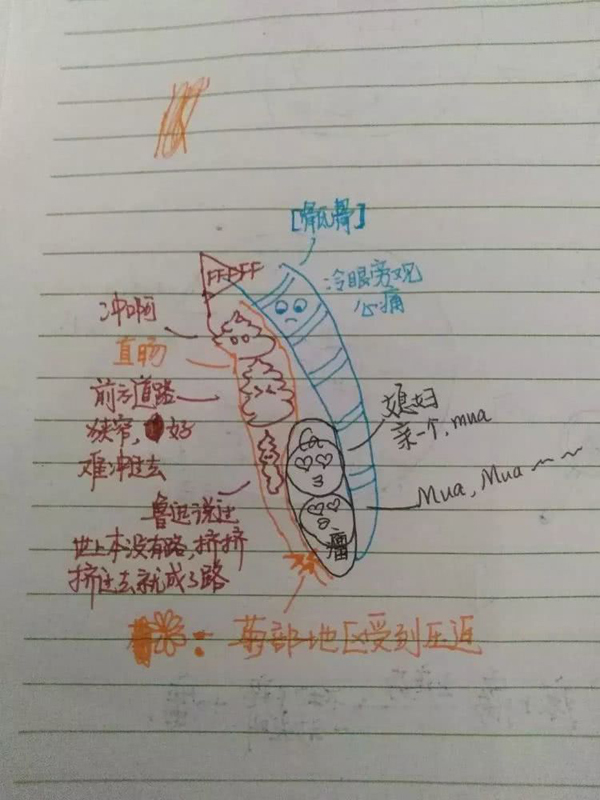 冷眼旁观
心痛
冲啊
直肠
前方道路
狭窄,好
难冲过去
媳妇
亲一个,mua
Mua,Mua~~
鲁迅说过
世上本没有路,挤挤
挤过去就成了路
瘤
菊部地区受到压迫